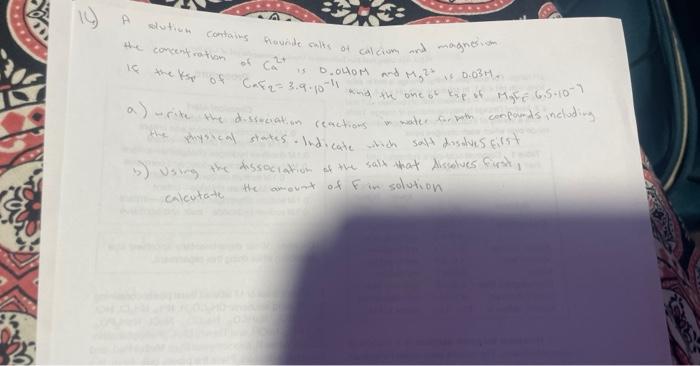 14) A solution contains flouride salts of calcium and magnesium
the concentration of Ca²⁺ is 0.040M and Mg²⁺ is 0.03M.
If the Ksp of CaF₂ = 3.9·10⁻¹¹ and the one of Ksp of MgF₂ = 6.5·10⁻⁹
a) write the dissociation reactions in water for both compounds including
the physical states. Indicate which salt dissolves first
b) Using the dissociation of the salt that dissolves first,
calculate the amount of F in solution